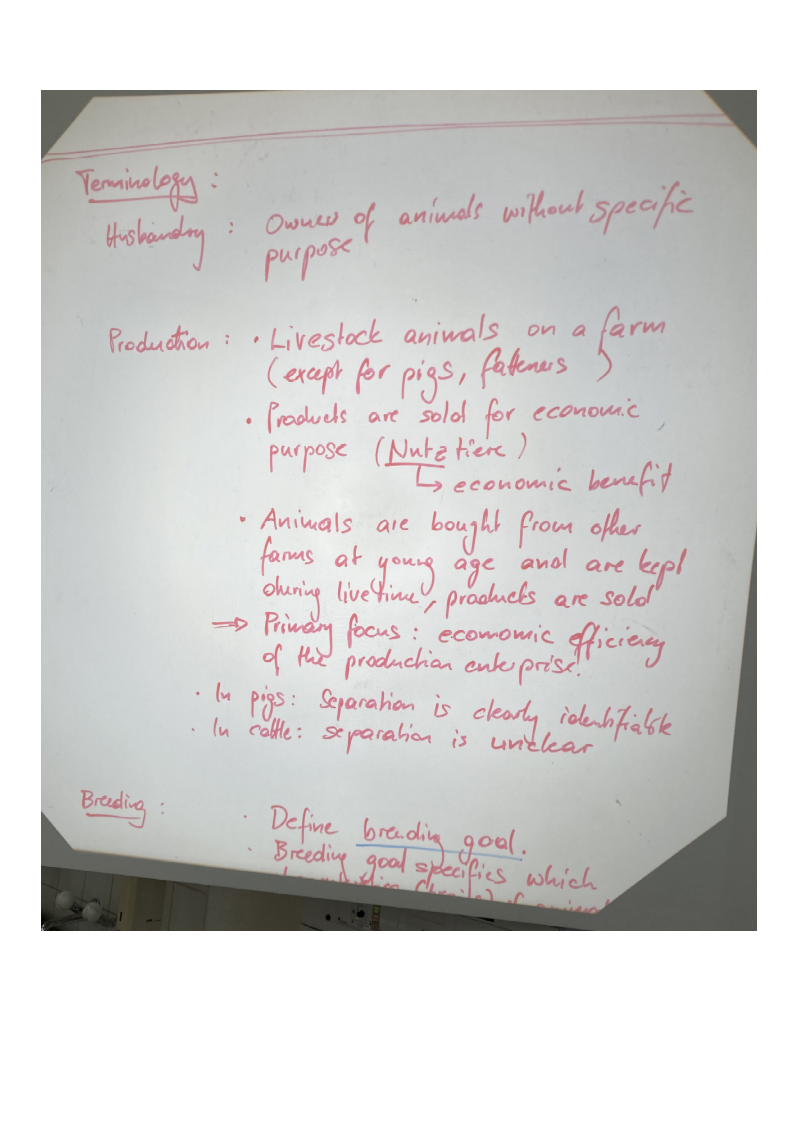 Terminology :
Husbandry : Owner of animals without specific
purpose
Production : • Livestock animals on a farm
(except for pigs, fatteners )
• Products are sold for economic
purpose (Nutztiere)
↳ economic benefit
• Animals are bought from other
farms at young age and are kept
during livetime, products are sold
⇒ Primary focus : economic efficiency
of the production enterprise!
• In pigs : Separation is clearly identifiable
• In cattle : separation is unclear
Breeding : • Define breeding goal.
• Breeding goal specifies which
(traits) of animal